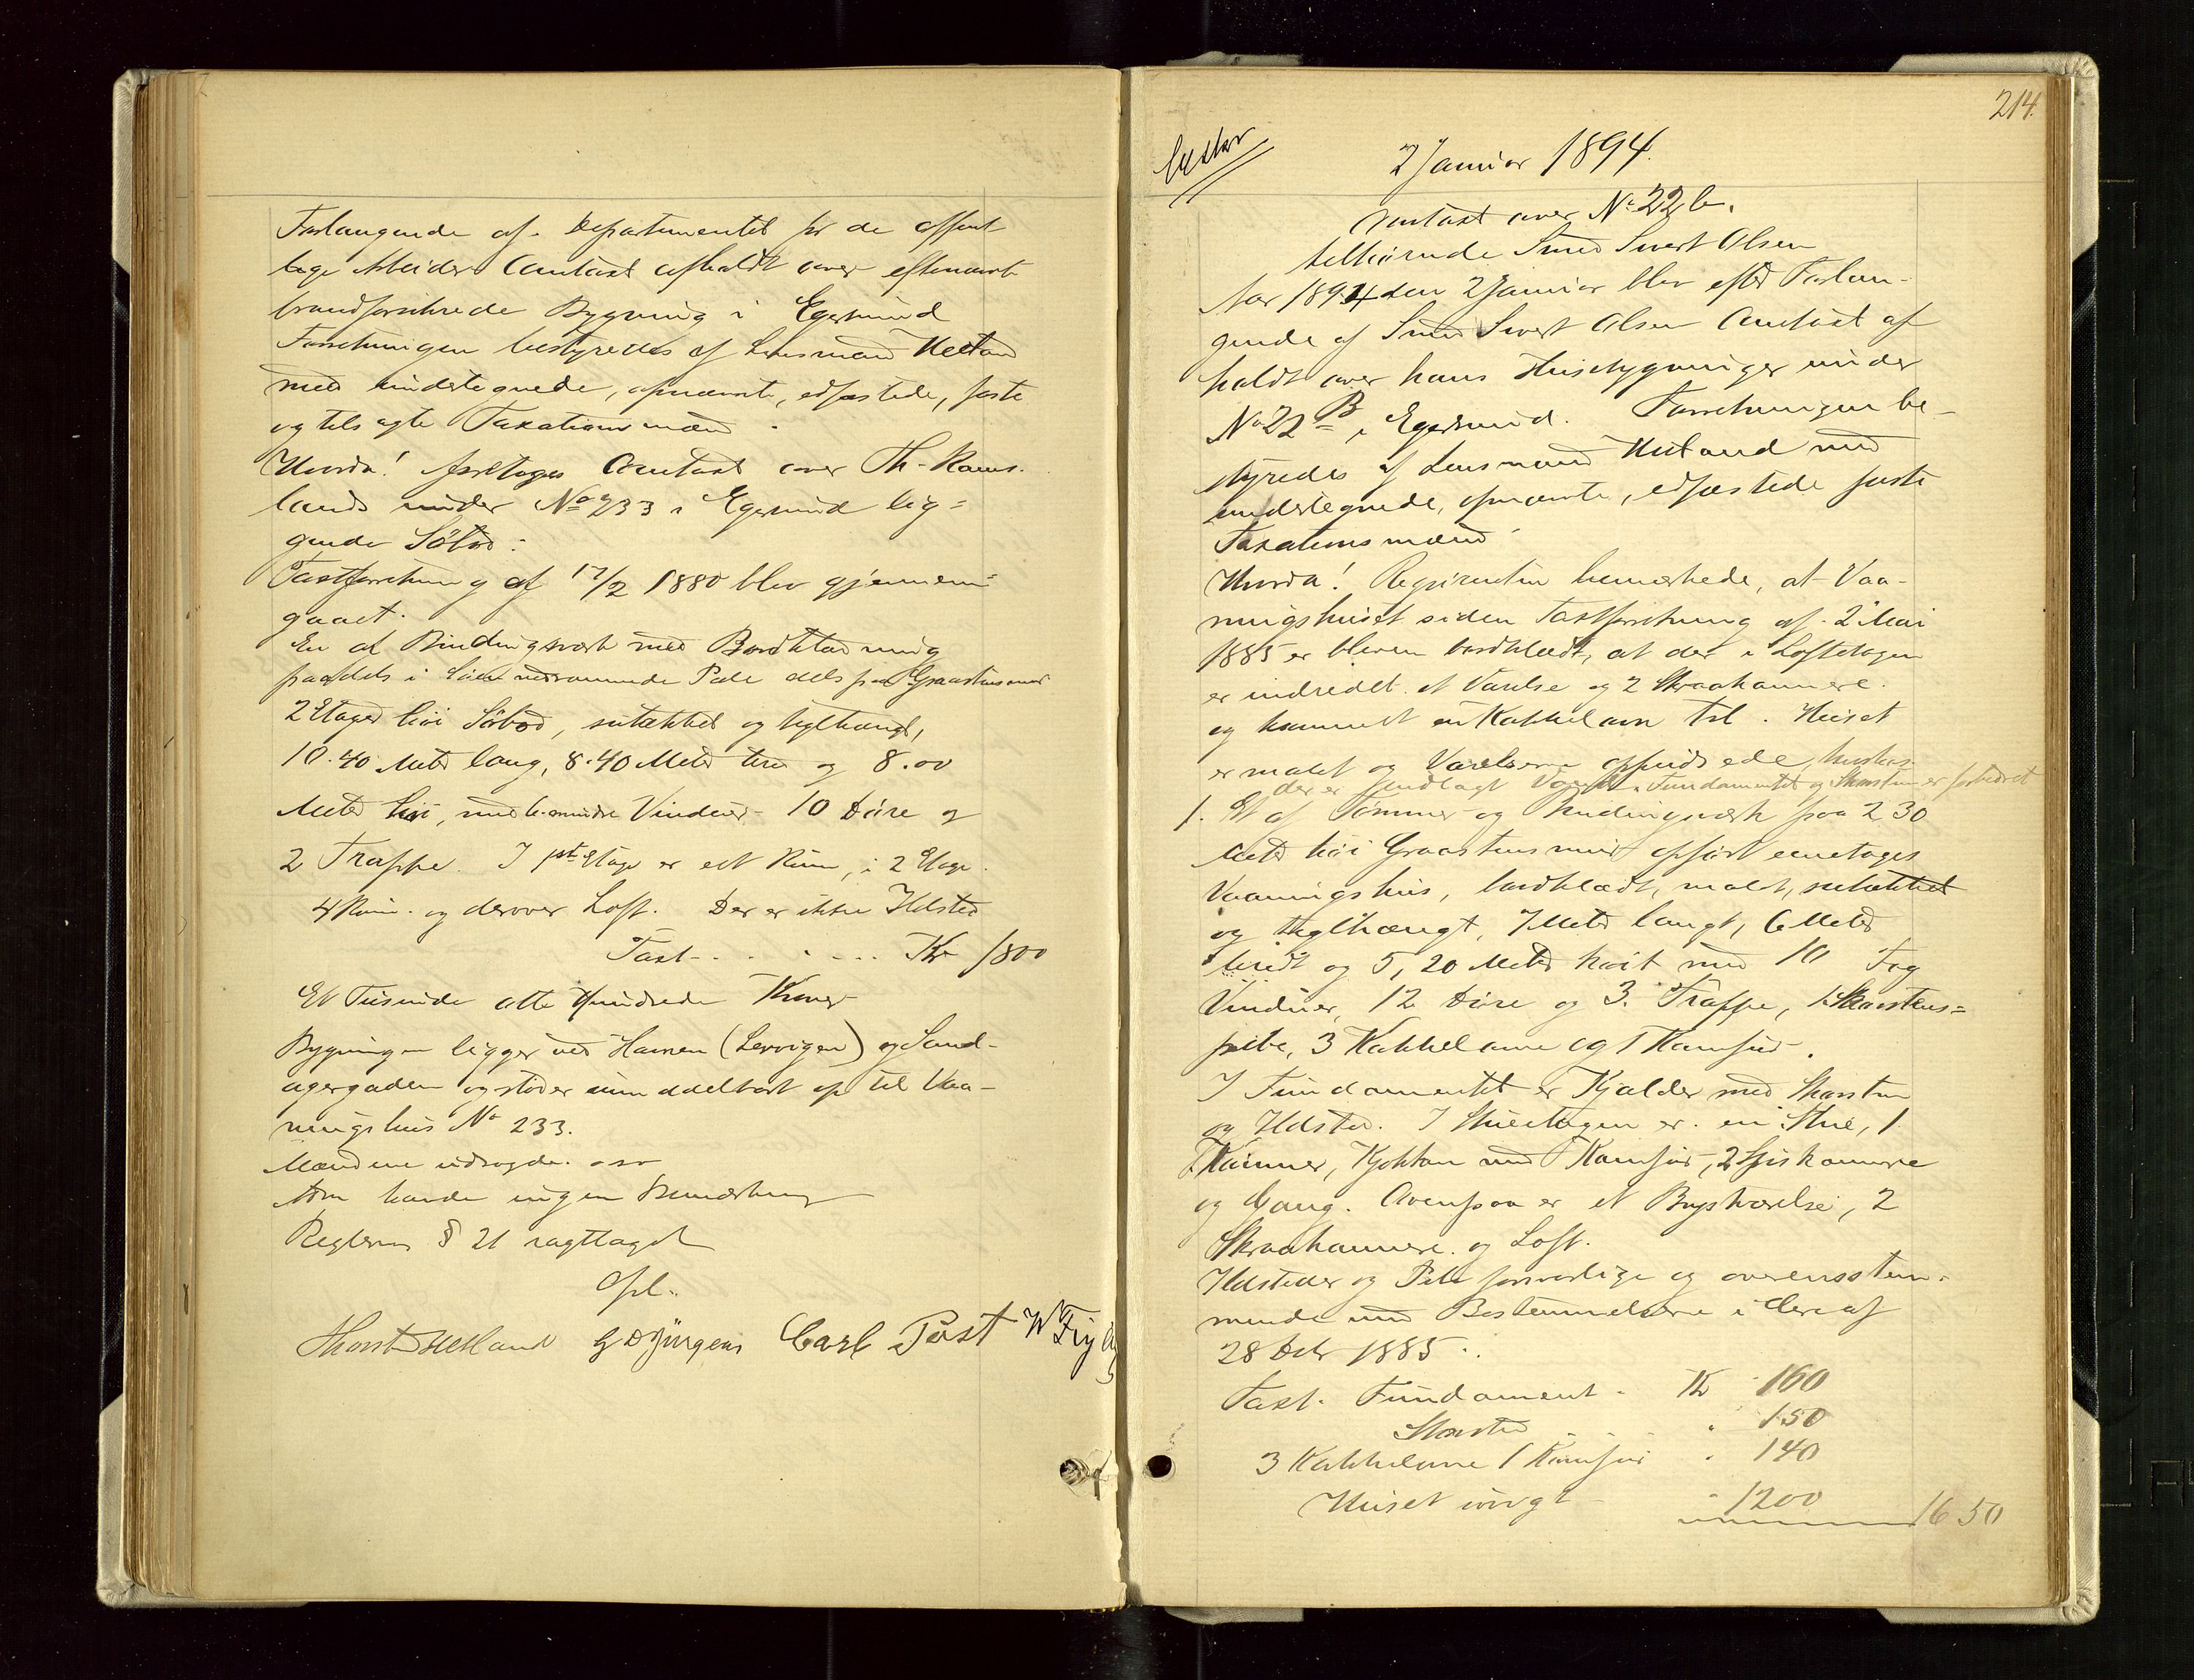 Forlangende af Departementet for de offent
lige Arbeider Omtaxt afholdt over eftenævnte
brandforsikrede Bygning i Egersund
Forretningen bestyredes af Lensmand Hetland
med undertegnede, opnævnte, edfæstede, faste
og tilsagte Taxationsmænd.
Hvorda! foretoges Omtaxt over Th. Rams-
lands under No 233 i Egersund lig=
gende Søbod:
Taxtforretning af 17/2 1880 blev gjennem=
gaaet.
En af Bindingsværk med Bordklædning
paa dels i Søen nedrammede Pæle dels paa Graastensmur
2 Etager høi Søbod, sutækket og teglhængt,
10.40 Meter lang, 8.40 Meter bred og 8.00
Meter høi, med 6 mindre Vinduer 10 Døre og
2 Trappe. I 1ste Etage er et Rum, i 2 Etage
4 Rum og derover Loft. Der er ikke Ildsted
Taxt - . . . - - . . Kr 1800
Et Tusinde otte Hundrede Kroner
Bygningen ligger ved Havnen (Lervigen) og Sand-
agergaden og støder umiddelbart op til Vaa-
ningshus No 233.
Mændene udsagde osv
Man havde ingen Bemærkning
Reglerne § 21 iagttaget
Opl.
Thorst Hetland G D Jürgens Carl Post W Fey
214.
2 Januar 1894.
Omtaxt over No 22 b.
tilhørende Smed Sivert Olsen
Aar 1894 den 2 Januar blev efter Forlan-
gende af Smed Sivert Olsen Omtaxt af
holdt over hans Husebygninger under
No 22 B i Egersund. Forretningen be-
styredes af Lensmand Hetland med
undertegnede, opnævnte, edfæstede faste
Taxationsmænd
Hvorda! Reqvirenten bemærkede, at Vaa-
ningshuset siden Taxtforretning af 2 Mai
1885 er bleven bordklædt, at der i Loftetagen
er indredet et Værelse og 2 Skraakammere.
og kommet en Kakkelovn til. Huset
er malet og Værelserne oppudsede,
der er indlagt Vand Fundamentet og Skorsten er forbedret
1. Et af Tømmer og Bindingsværk paa 2 30
Meter høi Graastensmur opført eenetages
Vaaningshus, bordklædt, malet, sutækket
og teglhængt, 7 Meter langt, 6 Meter
bredt og 5,20 Meter høit med 10 Fag
Vinduer, 12 Døre og 3 Trappe, 1 Skorstens=
pibe, 3 Kakkelovne og 1 Komfur.
I Fundamentet er Kjælder med Skorsten
og Ildsted. I Stueetagen er en Stue, 1
Kammer, Kjøkken med Komfur, 2 Spiskammere
og Gang. Ovenpaa er et Brystværelse, 2
Skraakammere og Loft.
Ildsteder og Pibe forsvarlige og overensstem-
mende med Bestemmelserne i Lov af
28 Debr 1885.
Taxt. Fundament - Kr 160
Skorsten " 150
3 Kakkelovne 1 Komfur " 140
Huset øvrigt - " 1200 1650